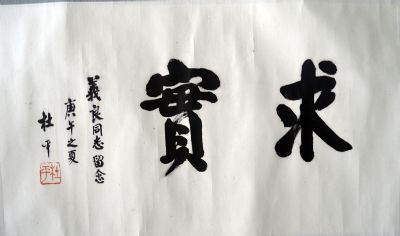 求實
義良同志留念
庚午之夏
杜平
杜平